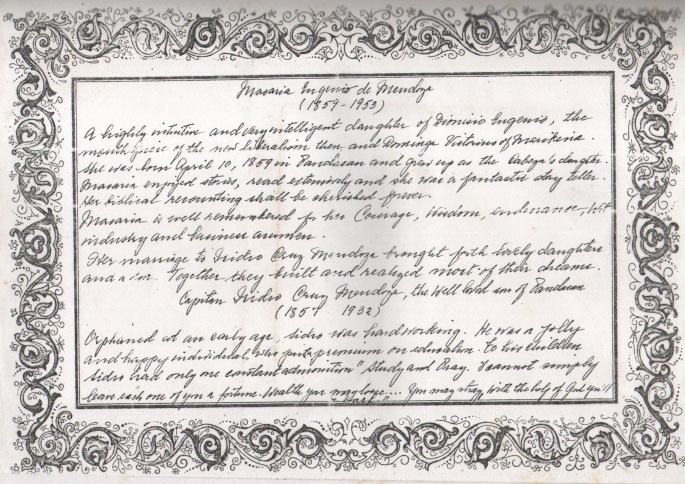 Macaria Eugenio de Mendoza
(1859-1953)
A highly intuitive and very intelligent daughter of Dionicio Eugenio, the
mouth piece of the new liberalism then, and Dominga Victorino of Marikina.
She was born April 10, 1859 in Pandacan and grew up as the Cabeza's daughter.
Macaria enjoyed stories, read extensively and she was a fantastic story teller.
Her biblical recounting shall be cherished forever.
Macaria is well remembered for her Courage, Wisdom, endurance, Wit
industry and business acumen.
Her marriage to Isidro Cruz Mendoza brought forth lovely daughters
and a son. Together they built and realized most of their dreams.
Capitan Isidro Cruz Mendoza, the Well loved son of Pandacan
(185 1932)
Orphaned at an early age, Isidro was hardworking. He was a jolly
and happy individual, who puts premium on education. To his children
Isidro had only one constant admonition "Study and Pray. I cannot simply
leave each one of you a fortune. Wealth you may ... You may stray, with the help of God you'll